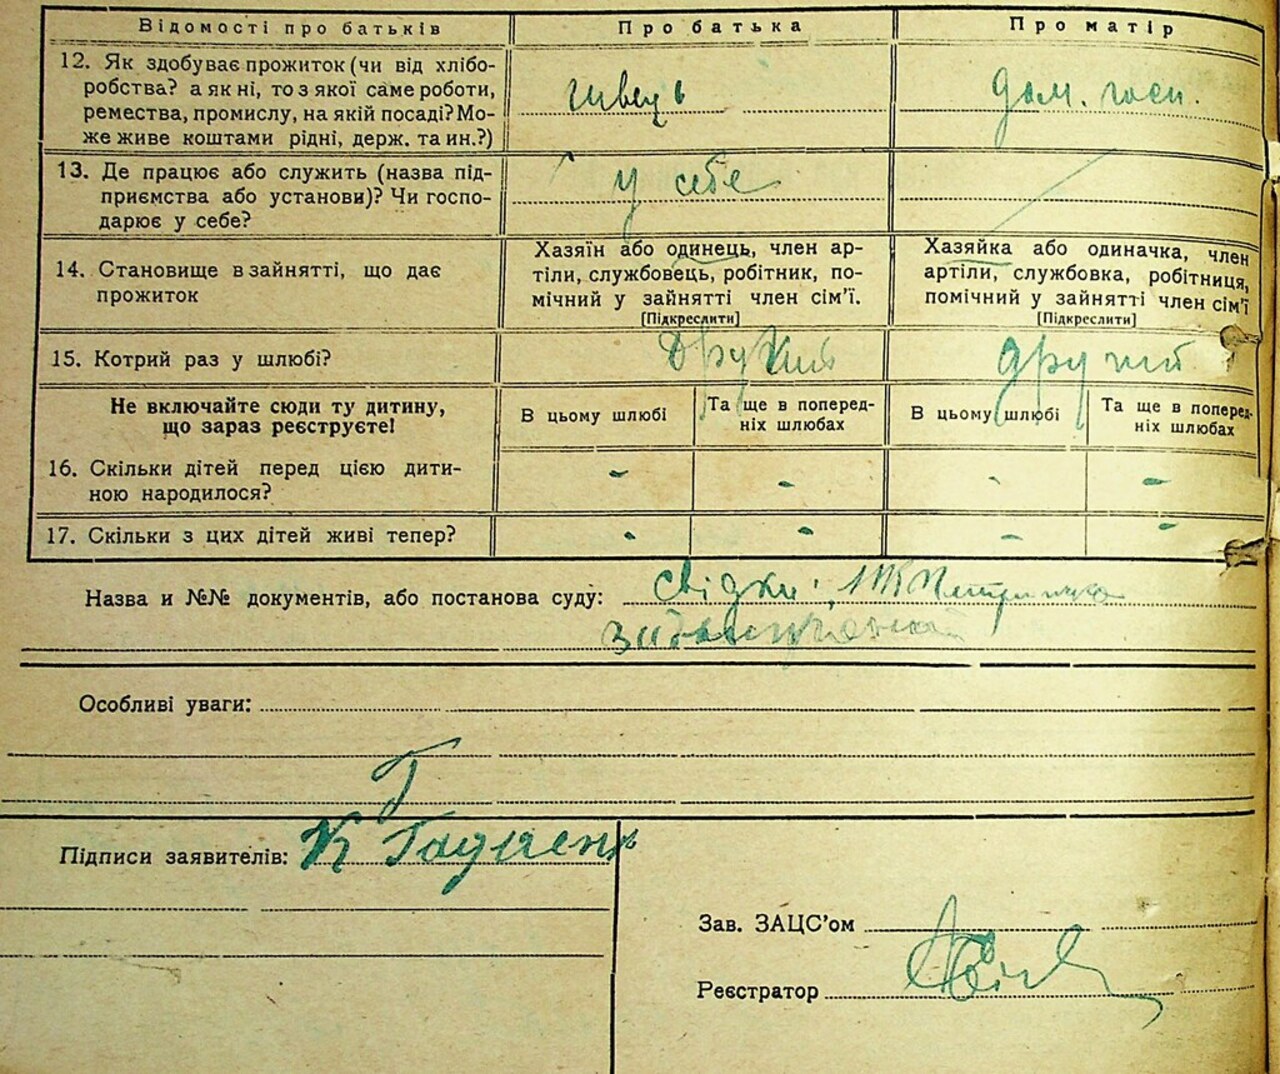 Відомості про батьків
Про батька
Про матір
12. Як здобуває прожиток (чи від хлібо-
робства? а як ні, то з якої саме роботи,
ремества, промислу, на якій посаді? Мо-
же живе коштами рідні, держ. та ин.?)
швець
дом. госп.
13. Де працює або служить (назва під-
приємства або установи)? Чи госпо-
дарює у себе?
у себе
14. Становище в зайнятті, що дає
прожиток
Хазяїн або одинець, член ар-
тіли, службовець, робітник, по-
мічний у зайнятті член сім'ї.
[Підкреслити]
Хазяйка або одиначка, член
артіли, службовка, робітниця,
помічний у зайнятті член сім'ї
[Підкреслити]
15. Котрий раз у шлюбі?
другий
другий
Не включайте сюди ту дитину,
що зараз реєструєте!
В цьому шлюбі
Та ще в поперед-
ніх шлюбах
В цьому шлюбі
Та ще в поперед-
ніх шлюбах
16. Скільки дітей перед цією дити-
ною народилося?
-
-
-
-
17. Скільки з цих дітей живі тепер?
-
-
-
-
Назва и №№ документів, або постанова суду:
свідки:
Особливі уваги:
Підписи заявителів:
К
Зав. ЗАЦС'ом
Реєстратор